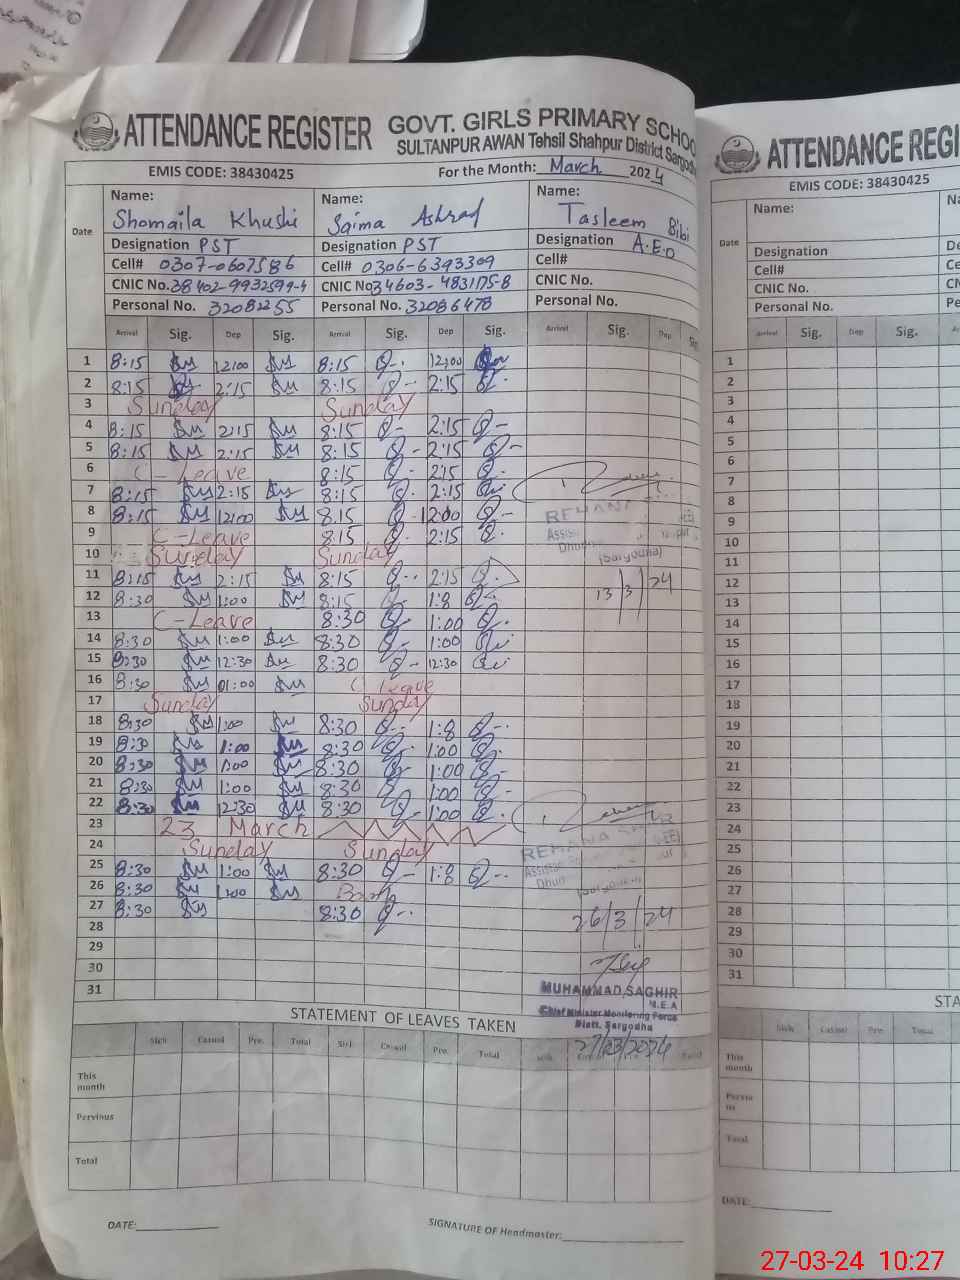 ATTENDANCE REGISTER GOVT. GIRLS PRIMARY SCHOO
SULTANPUR AWAN Tehsil Shahpur District Sargodha
EMIS CODE: 38430425 For the Month: March 2024
Date Name: Name: Name:
Shomaila Khushi Saima Ashraf Tasleem Bibi
Designation PST Designation PST Designation A.E.O
Cell# 0307-0607586 Cell# 0306-6393309 Cell#
CNIC No. 38402-9932599-4 CNIC No 34603-4831175-8 CNIC No.
Personal No. 32081255 Personal No. 32086478 Personal No.
Arrival Sig. Dep Sig. Arrival Sig. Dep Sig. Arrival Sig. Dep Sig.
1 8:15 12:00 8:15 12:00
2 8:15 2:15 8:15 2:15
3 Sunday Sunday
4 8:15 2:15 8:15 2:15
5 8:15 2:15 8:15 2:15
6 C-Leave 8:15 2:15
7 8:15 2:15 8:15 2:15
8 8:15 12:00 8:15 12:00
9 C-Leave 8:15 2:15
10 Sunday Sunday
11 8:15 2:15 8:15 2:15
12 8:30 1:00 8:15 1:8
13 C-Leave 8:30 1:00
14 8:30 1:00 8:30 1:00
15 8:30 12:30 8:30 12:30
16 8:30 01:00 C Leave
17 Sunday Sunday
18 8:30 1:00 8:30 1:8
19 8:30 1:00 8:30 1:00
20 8:30 1:00 8:30 1:00
21 8:30 1:00 8:30 1:00
22 8:30 12:30 8:30 1:00
23 23 March
24 Sunday Sunday
25 8:30 1:00 8:30 1:8
26 8:30 1:00
27 8:30 8:30
28
29
30
31
REHANA
(Sargodha)
13/3/24
REHANA
26/3/24
MUHAMMAD SAGHIR
M.E.A
Chief Minister Monitoring Force
Distt. Sargodha
27/03/2024
STATEMENT OF LEAVES TAKEN
Sick Casual Pre. Total Sick Casual Pre. Total Sick
This month
Pervious
Total
DATE: SIGNATURE OF Headmaster:
ATTENDANCE REGI
EMIS CODE: 38430425
Date Name:
Designation
Cell#
CNIC No.
Personal No.
Arrival Sig. Dep Sig.
1
2
3
4
5
6
7
8
9
10
11
12
13
14
15
16
17
18
19
20
21
22
23
24
25
26
27
28
29
30
31
STA
Sick Casual Pre. Total
This month
Total
DATE:
27-03-24 10:27